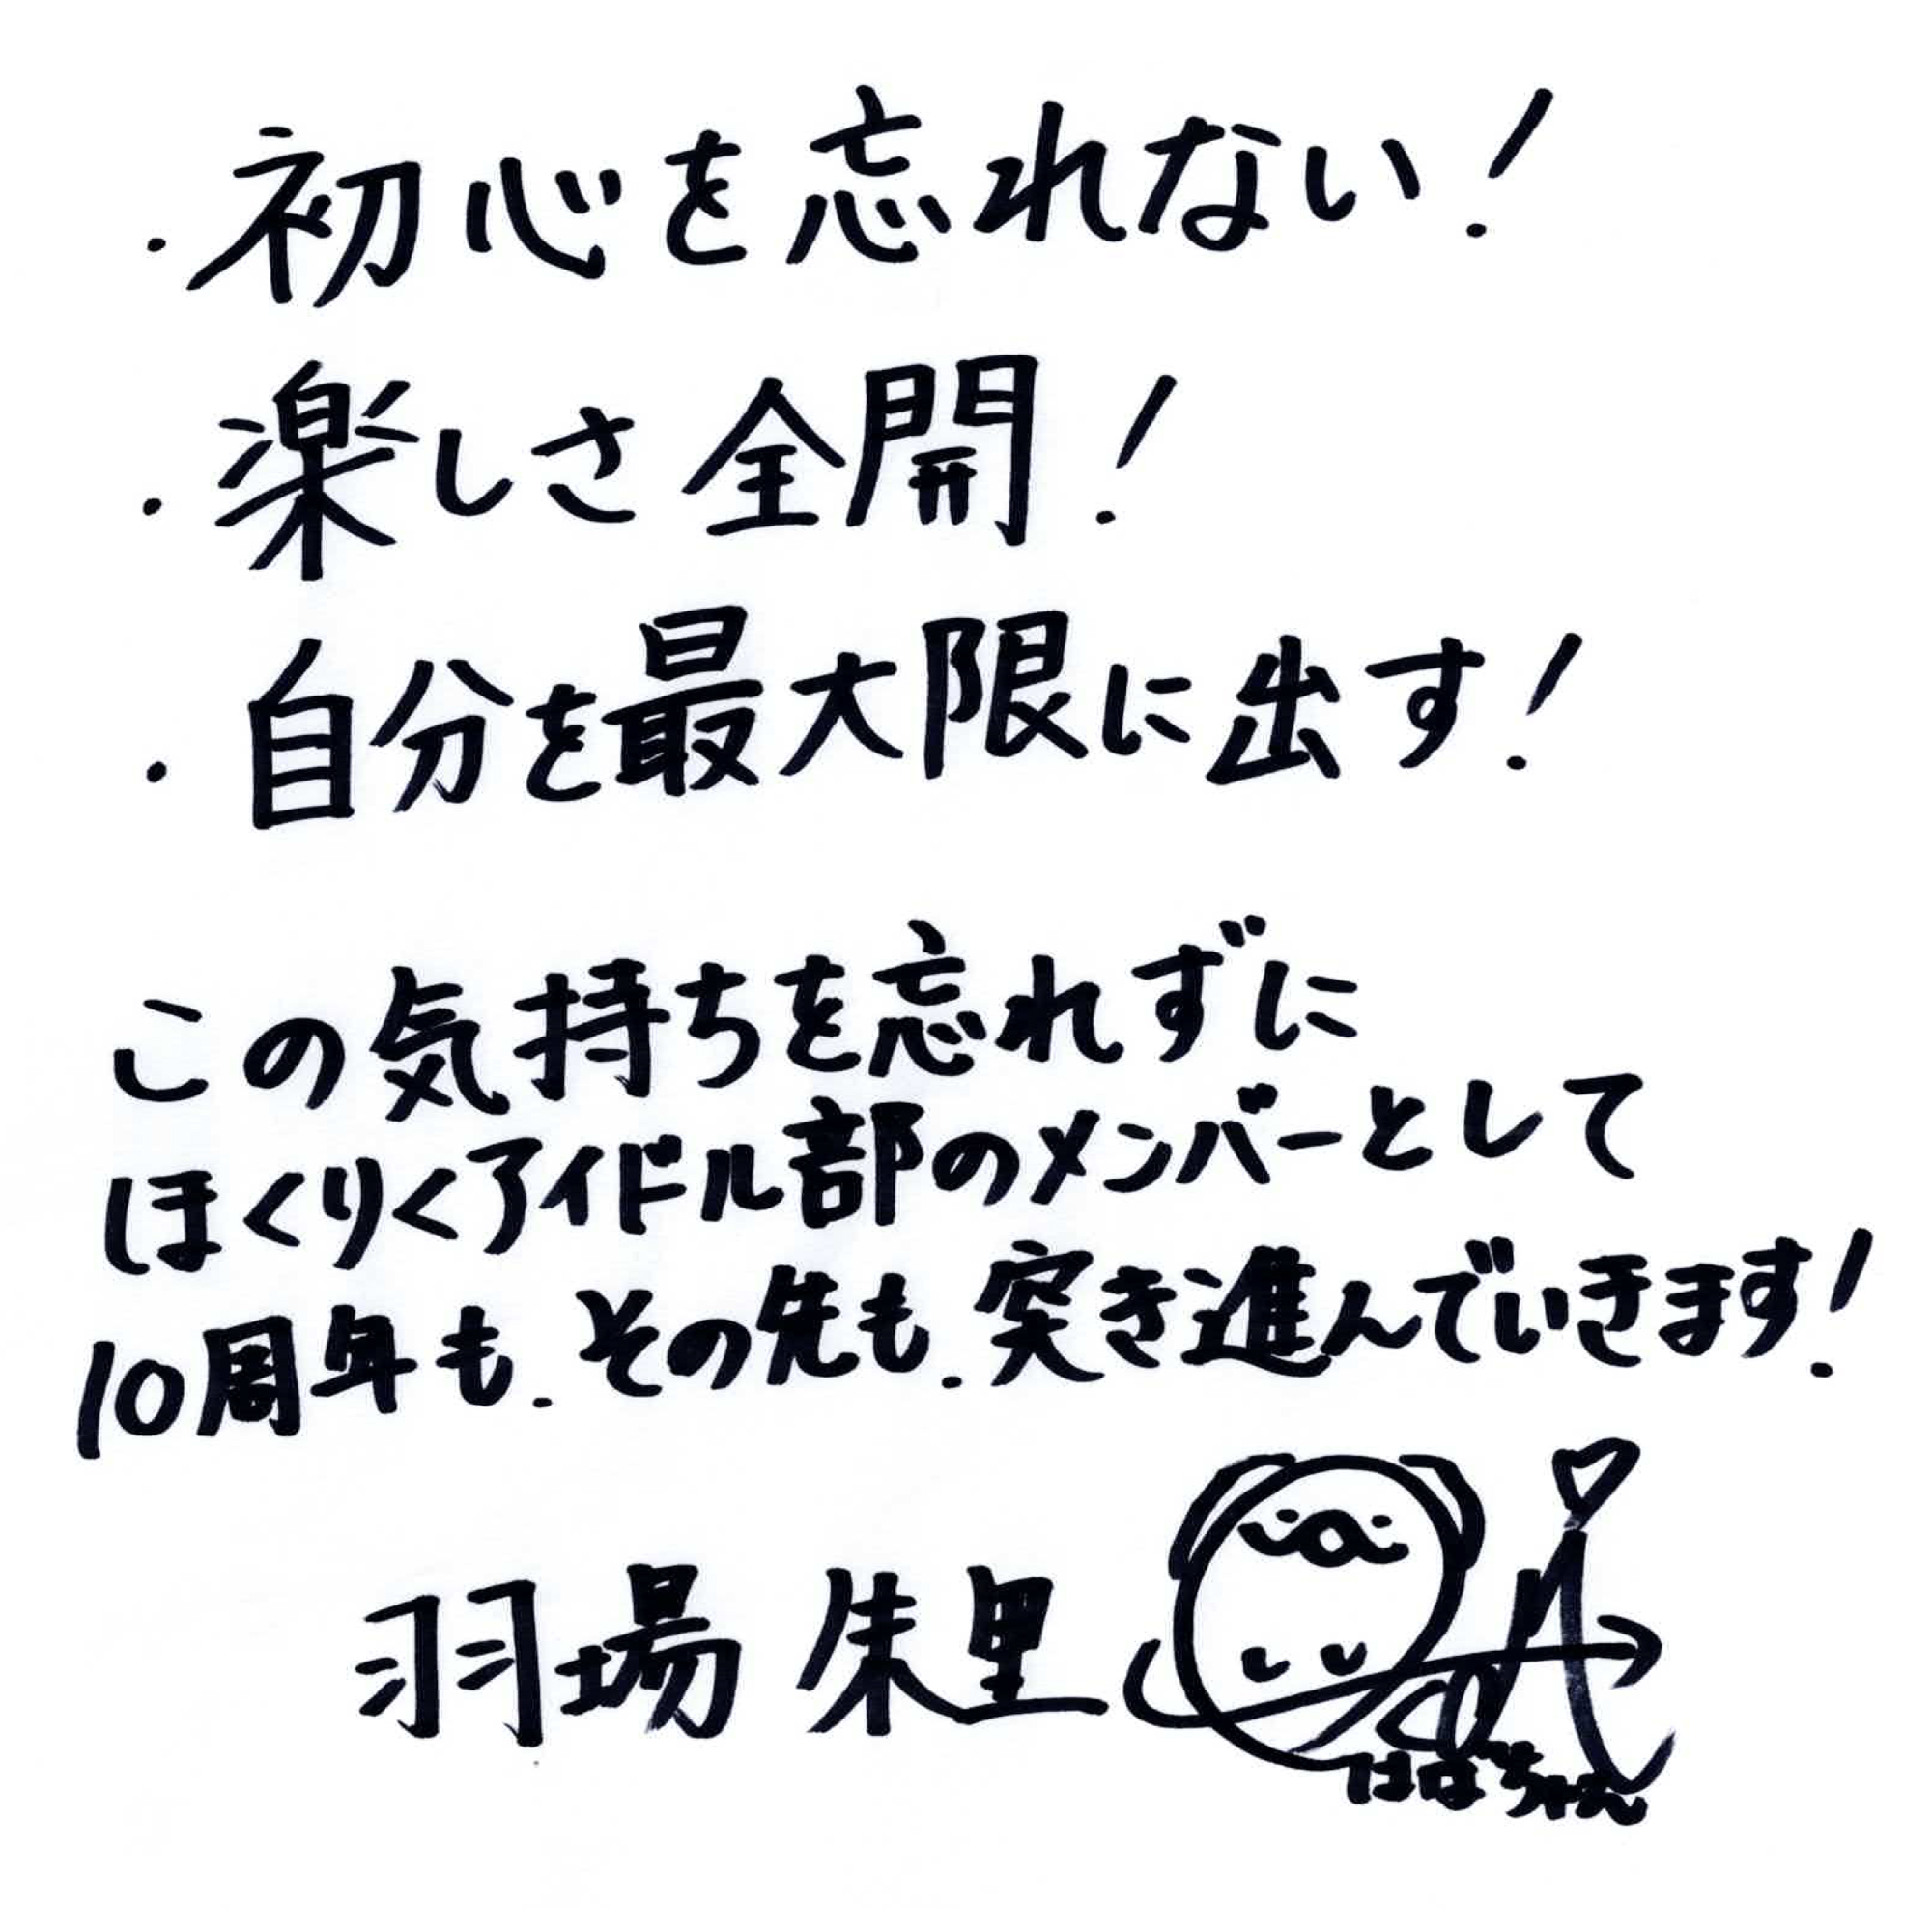 ・初心を忘れない！
・楽しさ全開！
・自分を最大限に出す！
この気持ちを忘れずに
ほくりくアイドル部のメンバーとして
10周年も、その先も、突き進んでいきます！
羽場 朱里
はばちゃん